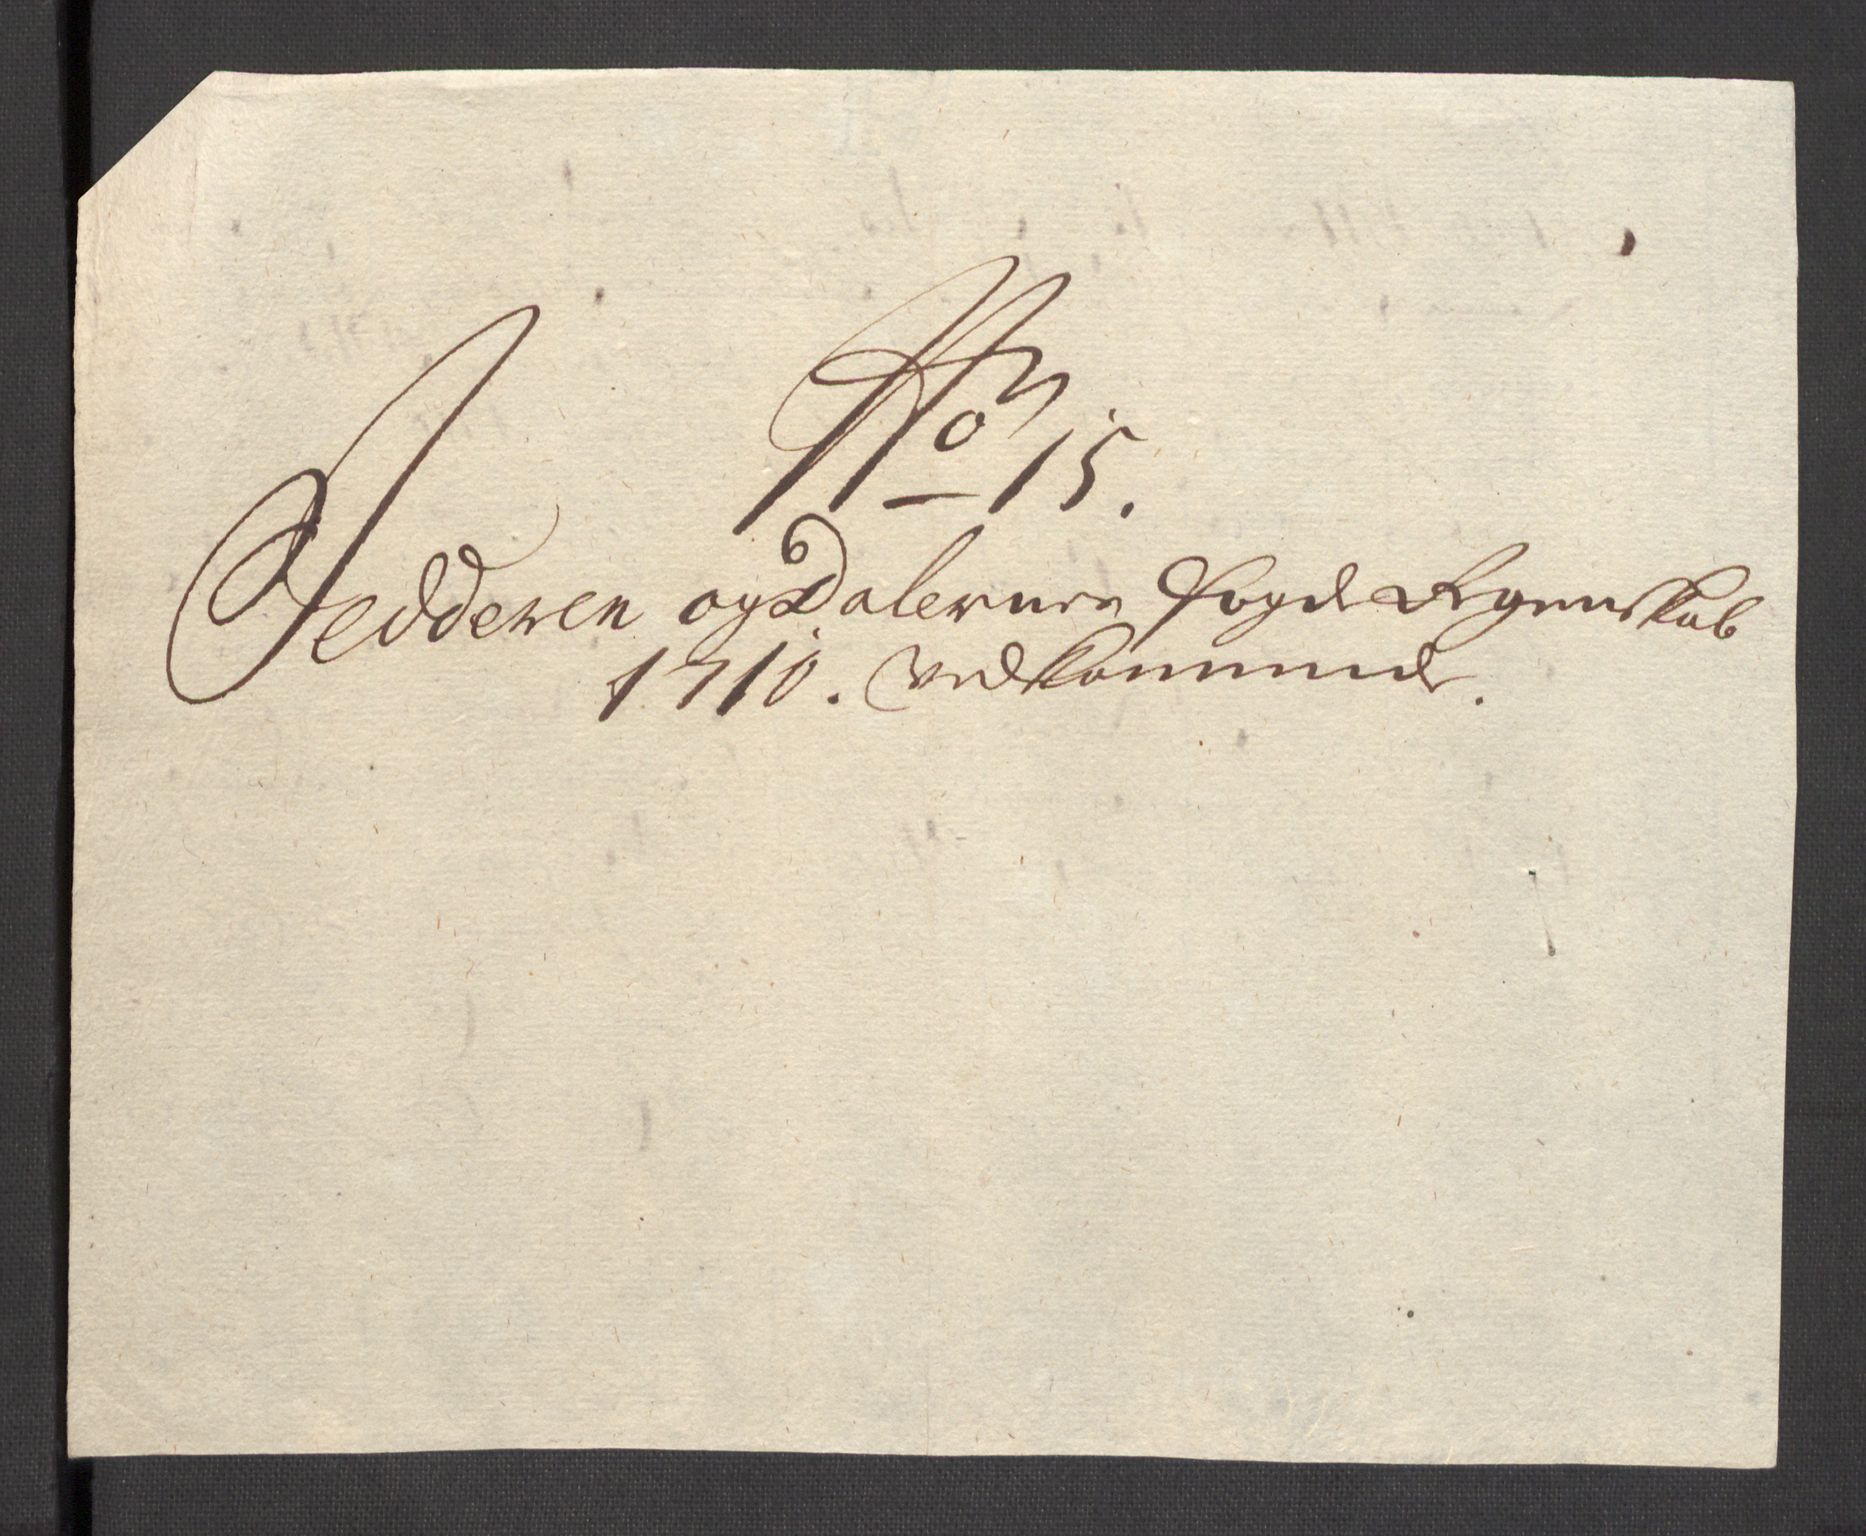 No 15.
Jedderen og Dalernes Fogde Regenskab
1710. Vedkommende.